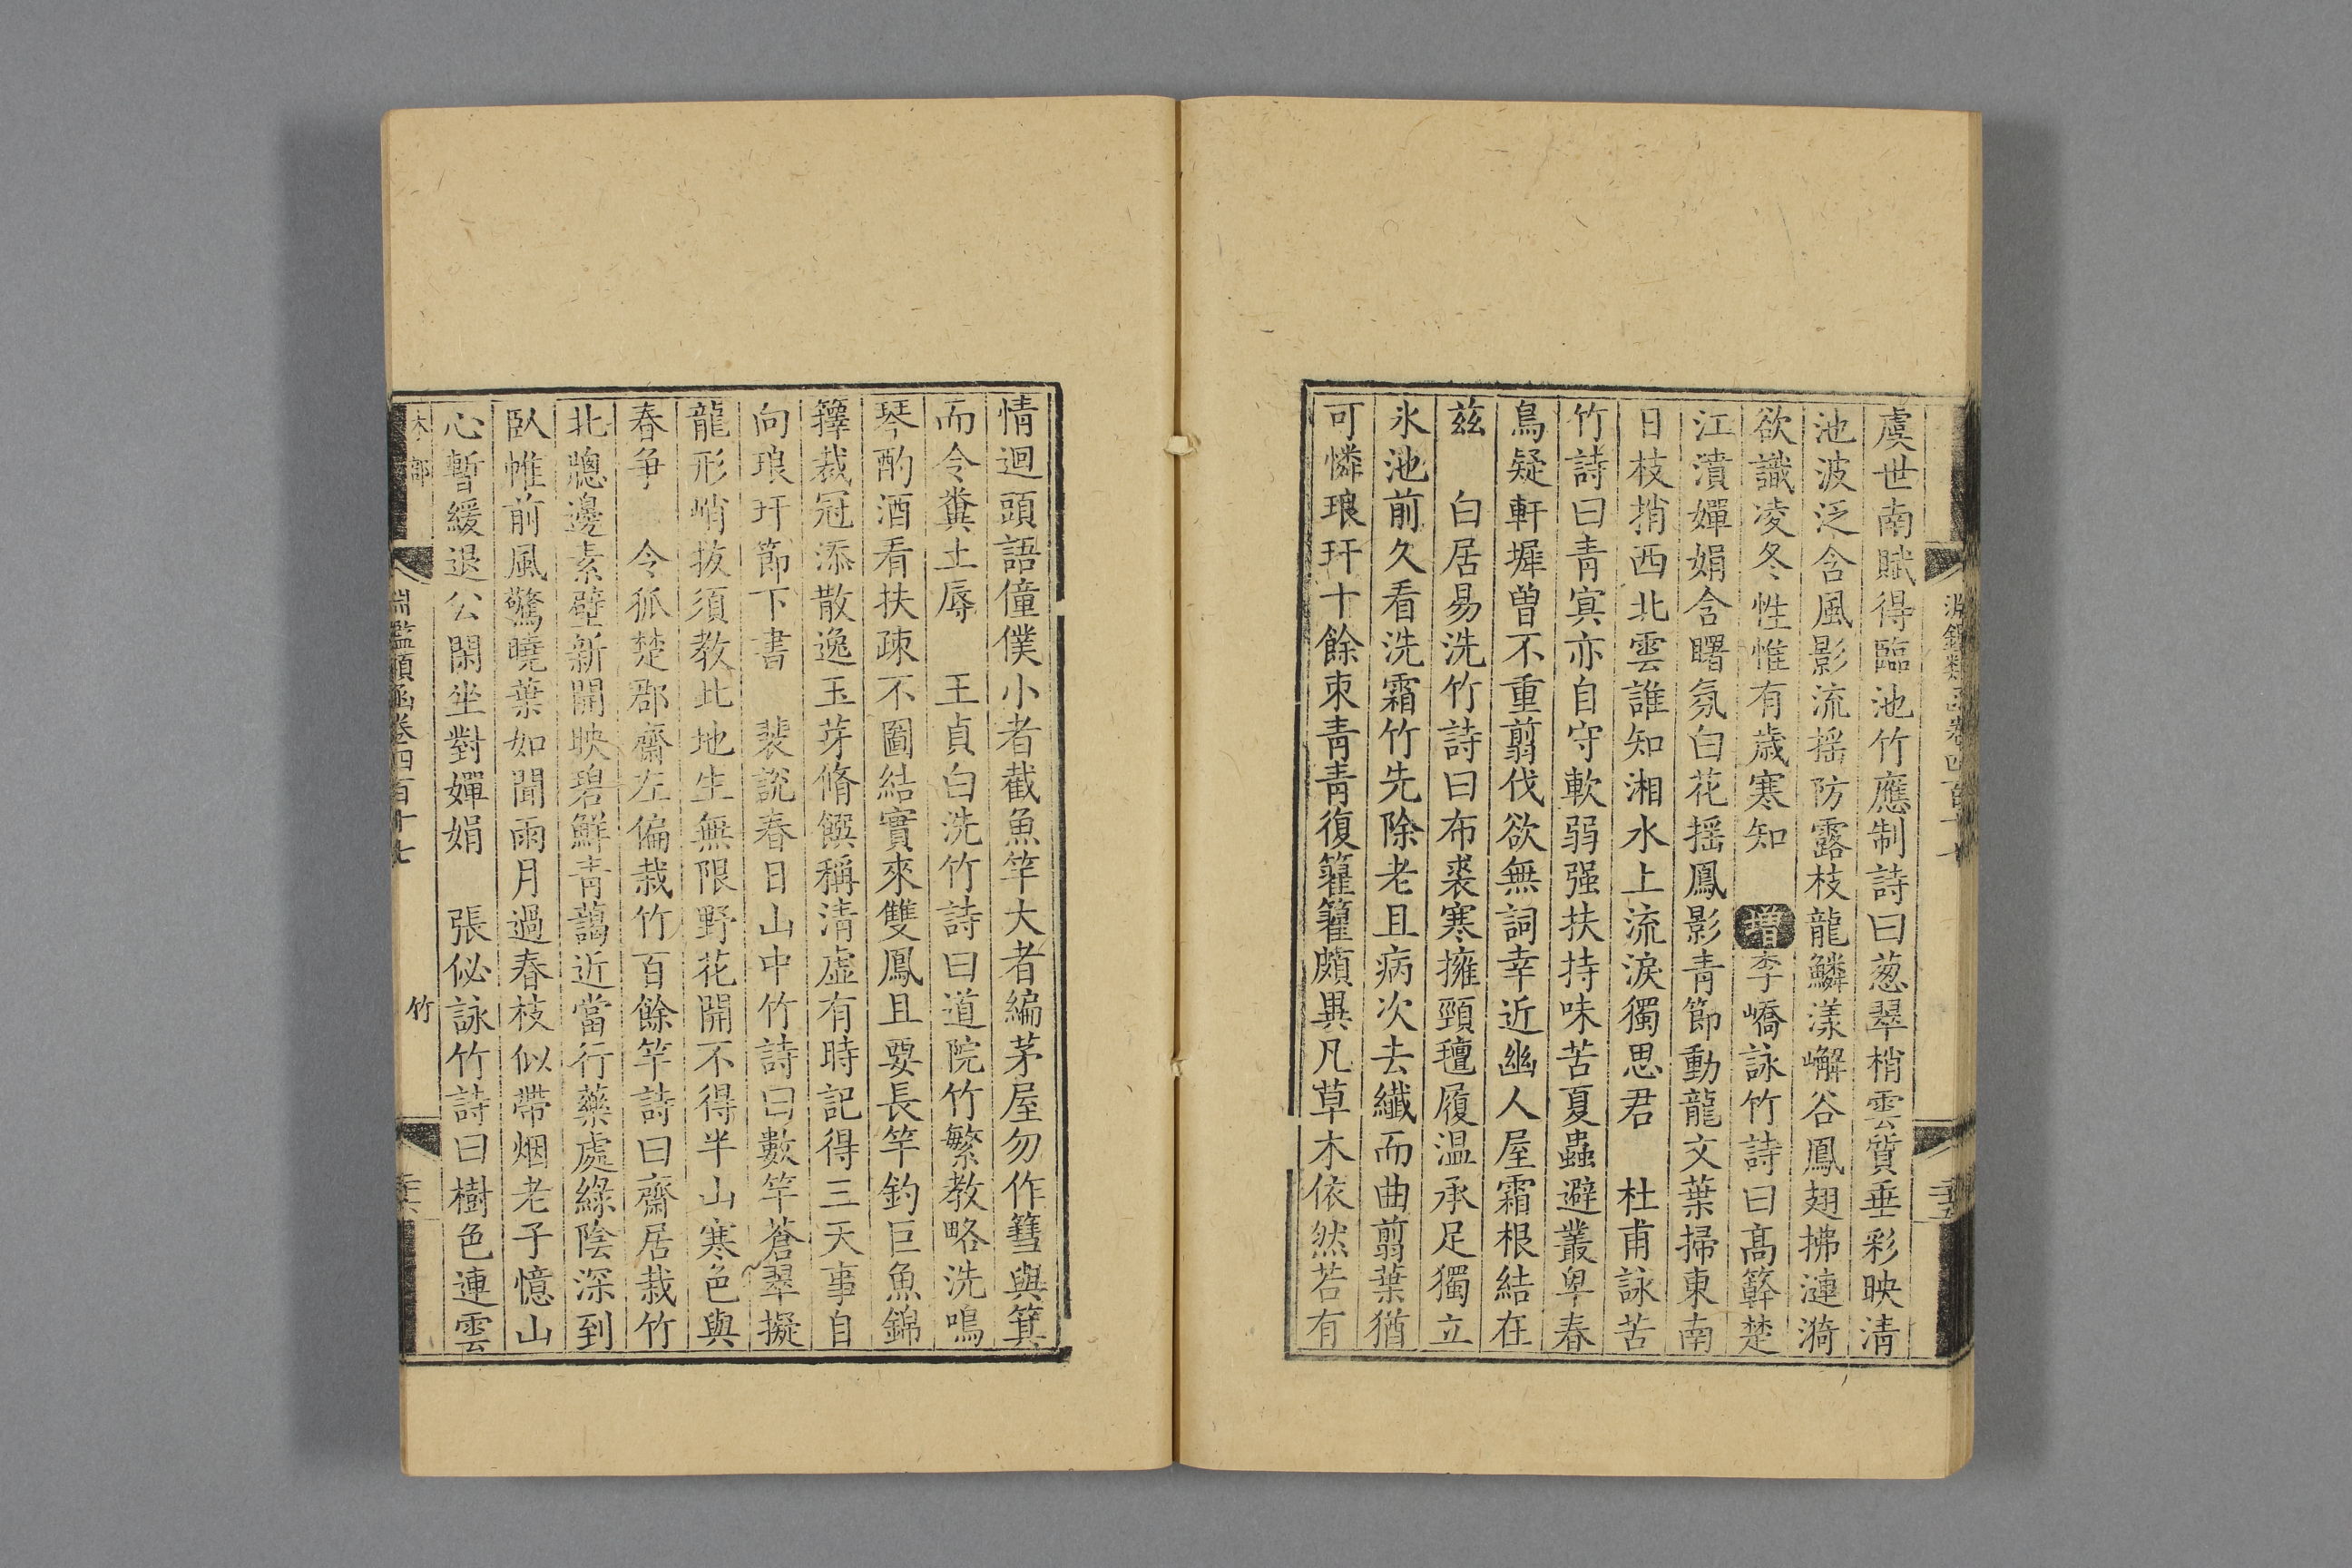 虞世南賦得臨池竹應制詩曰葱翠梢雲質垂彩映清
池波泛含風影流摇防露枝龍鱗漾嶰谷鳳翅拂漣漪
欲識凌冬性惟有歲寒知 增李嶠詠竹詩曰髙簳楚
江濆嬋娟含曙氛白花揺鳳影青節動龍文葉掃東南
日枝捎西北雲誰知湘水上流淚獨思君 杜甫詠苦
竹詩曰青㝠亦自守軟弱强扶持味苦夏蟲避叢卑春
鳥疑軒墀曽不重翦伐欲無詞幸近幽人屋霜根結在
兹 白居易洗竹詩曰布裘寒擁頸氊履温承足獨立
氷池前久看洗霜竹先除老且病次去纎而曲翦葉猶
可憐琅玕十餘束青青復籊籊頗異凡草木依然若有
情迴頭語僮僕小者截魚竿大者編茅屋勿作篲與箕
而令糞土辱 王貞白洗竹詩曰道院竹繁教略洗鳴
琴酌酒看扶疎不圖結實來雙鳳且要長竿釣巨魚錦
籜裁冠添散逸玉芽脩饌稱清虚有時記得三天事自
向琅玕節下書 裴説春日山中竹詩曰數竿蒼翠擬
龍形峭抜須教此地生無限野花開不得半山寒色與
春爭 令狐楚郡齋左偏栽竹百餘竿詩曰齋居栽竹
北牕邊素壁新開映碧鮮青藹近當行藥處緑陰深到
臥帷前風驚曉葉如聞雨月過春枝似帶烟老子憶山
心暫緩退公閑坐對嬋娟 張佖詠竹詩曰樹色連雲
木部 淵鑑類函卷四百十七 竹